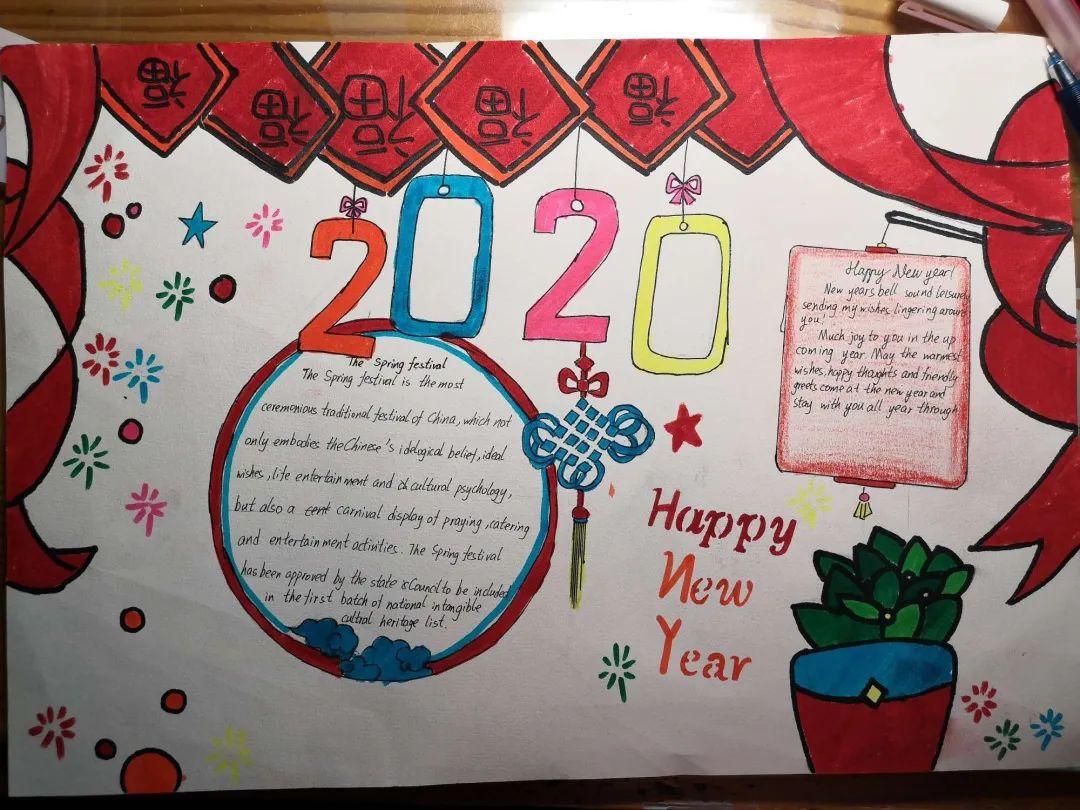 福 福 福 福 福
2020
The Spring festival
The Spring festival is the most
ceremonious traditional festival of China, which not
only embodies the Chinese's idelogical belief, ideal
wishes, life entertainment and cultural psychology,
but also a carnival display of praying, catering
and entertainment activities. The Spring festival
has been approved by the state Council to be included
in the first batch of national intangible
cultral heritage list.
Happy New year!
New years bell sound leisurely
sending my wishes lingering around
you!
Much joy to you in the up
coming year. May the warmest
wishes, happy thoughts and friendly
greets come at the new year and
stay with you all year through
Happy
New
Year